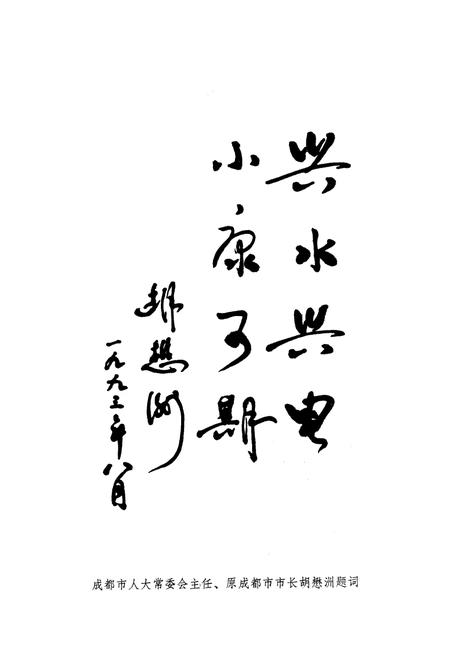 兴水兴电
小康可期
胡懋洲
一九九三年八月
成都市人大常委会主任、原成都市市长胡懋洲题词